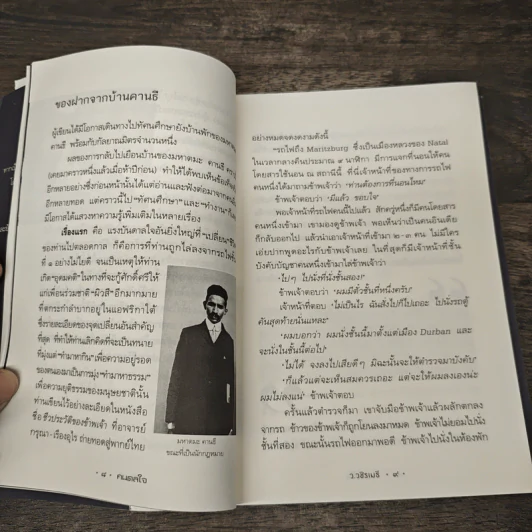 ของฝากจากบ้านคานธี
ผู้เขียนได้มีโอกาสเดินทางไปทัศนศึกษายังบ้านพักของมหาตมะ
คานธี พร้อมกับกัลยาณมิตรจำนวนหนึ่ง
ผลของการกลับไปเยือนบ้านของมหาตมะ คานธี
(เคยมาคราวหนึ่งแล้วเมื่อห้าปีก่อน) ทำให้ได้พบเห็นข้อ
อีกหลายอย่างซึ่งก่อนหน้านั้นได้แต่อ่านและฟังต่อมาจาก
อีกหลายทอด แต่คราวนี้ไป "ทัศนศึกษา" และ "ทำงาน"
มีโอกาสได้แสวงหาความรู้เพิ่มเติมในหลายเรื่อง
เรื่องแรก คือ แรงบันดาลใจอันยิ่งใหญ่ที่ "เปลี่ยน" ชีวิต
ของท่านไปตลอดกาล ก็คือการที่ท่านถูกไล่ลงจากรถไฟ
ที่ ๑ อย่างไม่ไยดี จนเป็นเหตุให้ท่าน
เกิด "อุดมคติ" ในทางที่จะกู้ศักดิ์ศรีให้
แก่เพื่อนร่วมชาติ "ผิวสี" อีกมากมาย
ที่ตกระกำลำบากอยู่ในแอฟริกาใต้
ซึ่งรายละเอียดของจุดเปลี่ยนอันสำคัญ
ที่สุด ที่ทำให้ท่านเลิกคิดที่จะเป็นทนาย
ที่มุ่งแต่ "ทำมาหากิน" เพื่อความอยู่รอด
ของตนเองมาเป็นการมุ่ง "ทำมาหาธรรม"
เพื่อความยุติธรรมของมนุษยชาตินั้น
ท่านเขียนไว้อย่างละเอียดในหนังสือ
ชื่อ ชีวประวัติของข้าพเจ้า ที่อาจารย์
กรุณา-เรืองอุไร ถ่ายทอดสู่พากย์ไทย
มหาตมะ คานธี
ขณะที่เป็นนักกฎหมาย
๘
อย่างหมดจดงดงามดังนี้
"รถไฟถึง Maritzburg ซึ่งเป็นเมืองหลวงของ Natal
ในเวลากลางคืนประมาณ ๙ นาฬิกา มีการแจกที่นอนให้คน
โดยสารใช้นอน ณ สถานีนี้ ที่นี่เจ้าหน้าที่ของทางการรถไฟ
คนหนึ่งได้มาถามข้าพเจ้าว่า 'ท่านต้องการที่นอนไหม'
ข้าพเจ้าตอบว่า 'มีแล้ว ขอบใจ'
พอเจ้าหน้าที่รถไฟคนนี้ไปแล้ว สักครู่หนึ่งก็มีคนโดยสาร
คนหนึ่งเข้ามา เขามองดูข้าพเจ้า พอเห็นว่าเป็นคนอินเดีย
ก็กลับออกไป แล้วนำเอาเจ้าหน้าที่เข้ามา ๒-๓ คน ไม่มีใคร
เอ่ยปากพูดอะไรกับข้าพเจ้าเลย ในที่สุดก็มีเจ้าหน้าที่ชั้น
บังคับบัญชาคนหนึ่งเข้ามาใส่ข้าพเจ้าว่า
'ไปๆ ไปนั่งที่นั่งชั้นสอง'
ข้าพเจ้าตอบว่า 'ผมมีตั๋วชั้นที่หนึ่งครับ'
เจ้าหน้าที่ตอบ 'ไม่เป็นไร ฉันสั่งไปก็ไปเถอะ ไปนั่งรถตู้
คันสุดท้ายนั่นแหละ'
'ผมบอกว่า ผมนั่งชั้นนี้มาตั้งแต่เมือง Durban และ
จะนั่งในชั้นนี้ต่อไป'
'ไม่ได้ จงลงไปเสียดีๆ มิฉะนั้นจะให้ตำรวจมาบังคับ'
'ก็แล้วแต่จะเห็นสมควรเถอะ แต่จะให้ผมลงเองน่ะ
ผมไม่ลงแน่' ข้าพเจ้าตอบ
ครั้นแล้วตำรวจก็มา เขาจับมือข้าพเจ้าแล้วผลักตกลง
จากรถ ข้าวของข้าพเจ้าก็ถูกโยนลงมาหมด ข้าพเจ้าไม่ยอมไปนั่ง
ชั้นที่สอง ขณะนั้นรถไฟออกมาพอดี ข้าพเจ้าไปนั่งในห้องพัก
ว.วชิรเมธี ๙